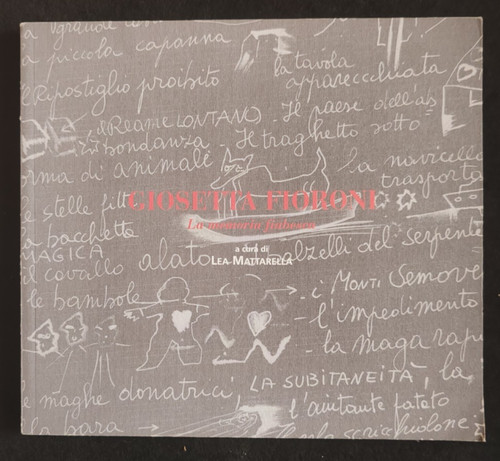 a grande
a piccola capanna
la tavola
apparecchiata
il Ripostiglio proibito
il REAME LONTANO - Il paese dell'ab
bondanza. - Il traghetto sotto
forma di animale
la navicella
trasporta
GIOSETTA FIORONI
La memoria fiabesca
le stelle
a bacchetta
MAGICA
a cura di
LEA MATTARELLA
il cavallo alato
calzelli del serpente
- i MONTI SEMOVE
le bambole
- l'impedimento
- la maga rapi
le maghe donatrici, LA SUBITANEITÀ, la
l'aiutante fatato
la bara